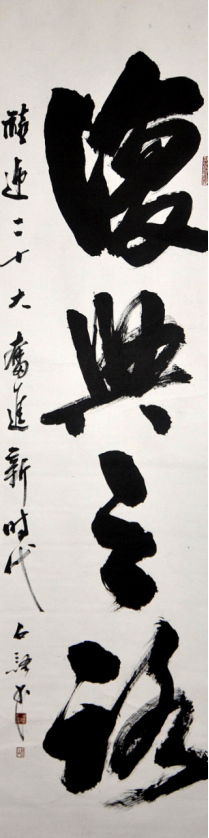 復興之路
迎二十大奮進新時代